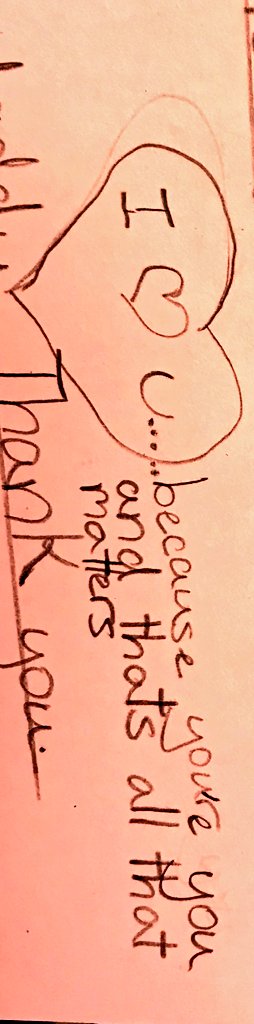 I ♡ U.....because you're you
and that's all that
matters
Thank you.